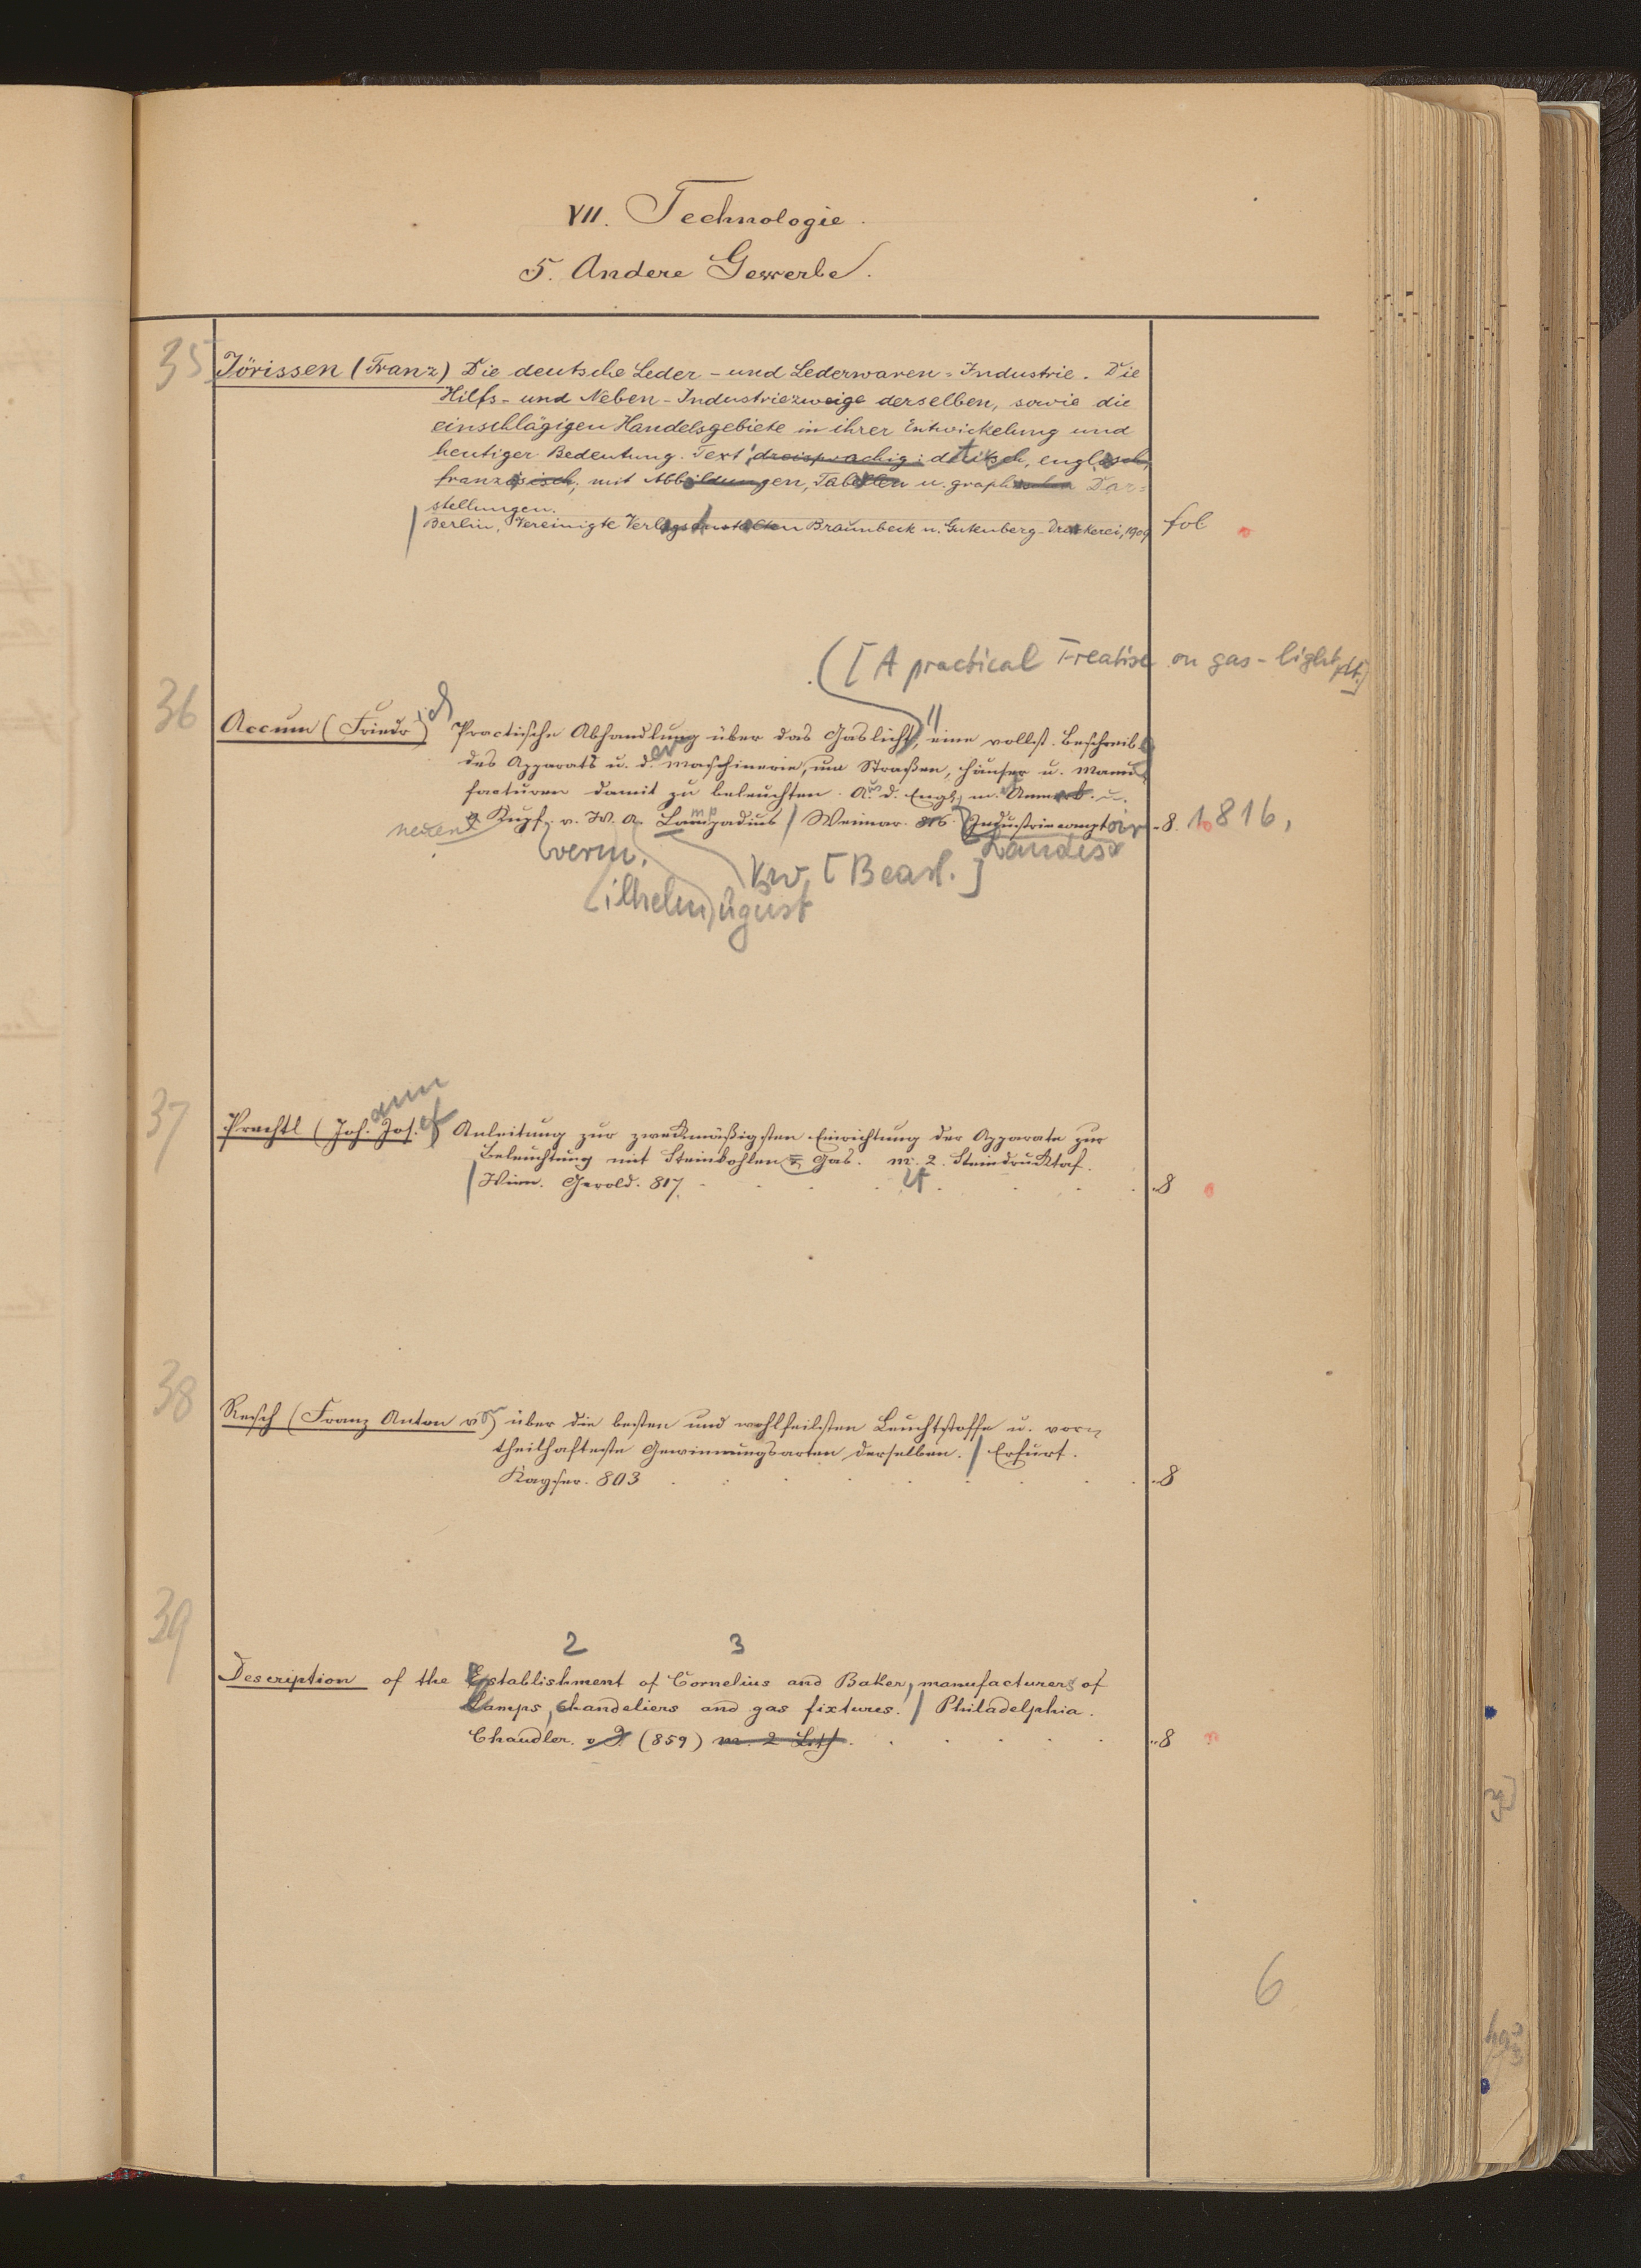 VII. Technologie.
5. Andere Gewerbe.
35
Jörissen (Franz) Die deutsche Leder- und Lederwaren-Industrie. Die
Hilfs- und Neben-Industriezweige derselben, sowie die
einschlägigen Handelsgebiete in ihrer Entwickelung und
heutiger Bedeutung. Text dreisprachig: deutsch, englisch,
französisch; mit Abbildungen, Tabellen u. graphischen Dar=
stellungen.
Berlin, Vereinigte Verlagsanstalten Braunbeck u. Gutenberg-Druckerei, 1909 fol
([A practical Treatise on gas-light, dt.]
36
Accum (Friedrich) Practische Abhandlung über das Gaslicht, eine vollst. Beschreib.
des Apparats u. der Maschinerie, um Straßen, Häuser u. Manu
facturen damit zu beleuchten. Aus d. Engl. m. Anmerk. u.
neuen Kupf. v. W. A. Lampadius / Weimar. 816 Industriecomptoir .8. 1816,
verm. Landes
Bw. [Bearb.]
ilhelm ugust
37
Prechtl (Johann Josef) Anleitung zur zweckmäßigsten Einrichtung der Apparate zur
Beleuchtung mit Steinkohlen=Gas. m. 2. Steindrucktaf.
/ Wien. Gerold. 817. .8
38
Resch (Franz Anton von) über die besten und wohlfeilsten Leuchtstoffe u. vor=
theilhafteste Gewinnungsarten derselben. / Erfurt.
Kayser. 803 .8
39
2 3
Description of the Establishment of Cornelius and Baker, manufacturers of
Lamps, chandeliers and gas fixtures. / Philadelphia.
Chandler. o J. (859) m. 2 Lith. .8
6